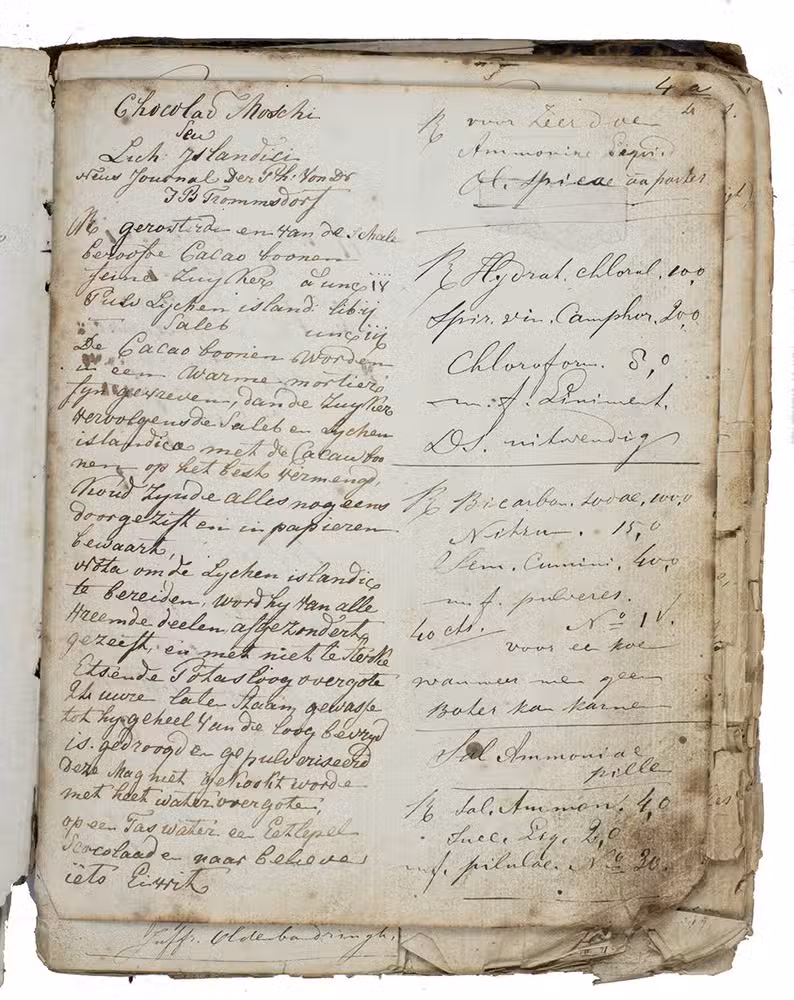 Chocolad Moschi
Seu
Lich: Islandici
Neus Journal Der Ph. Von Dr
J B Trommsdorf
R gerosterde en van de schale
beroofde Cacao boonen
feine Zuyker
Pulv Lychen islandi: lib ij
Saleb unc iij
De Cacao boonen worden
in een warme mortier
fyn gewreven, dan de Zuyker
vervolgens de Saleb en Lychen
islandica met de Cacau boo
nen op het best vermengd,
Koud Zynde alles nog eens
doorgezift en in papieren
bewaart,
Nota om de Lychen islandic
te bereiden, word hy van alle
vreemde deelen, afgezondert,
gezeift, en met niet te sterke
Etsende Potasloog overgote
24 uure laten staan, gewaste
tot hy geheel van de loog bevryd
is. gedroogd en gepulveriseerd
Deze Mag niet gekookt worde
met heet water overgote.
op een Tas water een Eetlepel
Scocolaade naar believe
iets Eiwit
4 a
R voor Zeer doe
Ammoniae Liquid
Ol. Spicae aa partes
R Hydrat. chloral. 10,0
Spir. vin. Camphor. 20,0
Chloroform. 5,0
m. f. Liniment.
DS. uitwendig
R Bicarbon. sodae, 100,0
Nitrum. 15,0
Sem. Cumini. 40,0
m. f. pulveres.
40 cts. No IV.
voor een koe
wanneer men geen
Boter kan karne
Sal Ammoniac
pille
R Sal. Ammon. 4,0
Succ. Liq. 2,0
m. f. pilulae. No 30.
Juffr. Oldenbandringh.